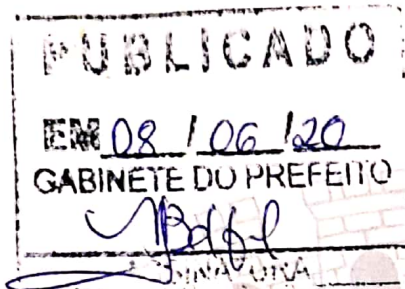 PUBLICADO
EM 08 / 06 / 20
GABINETE DO PREFEITO